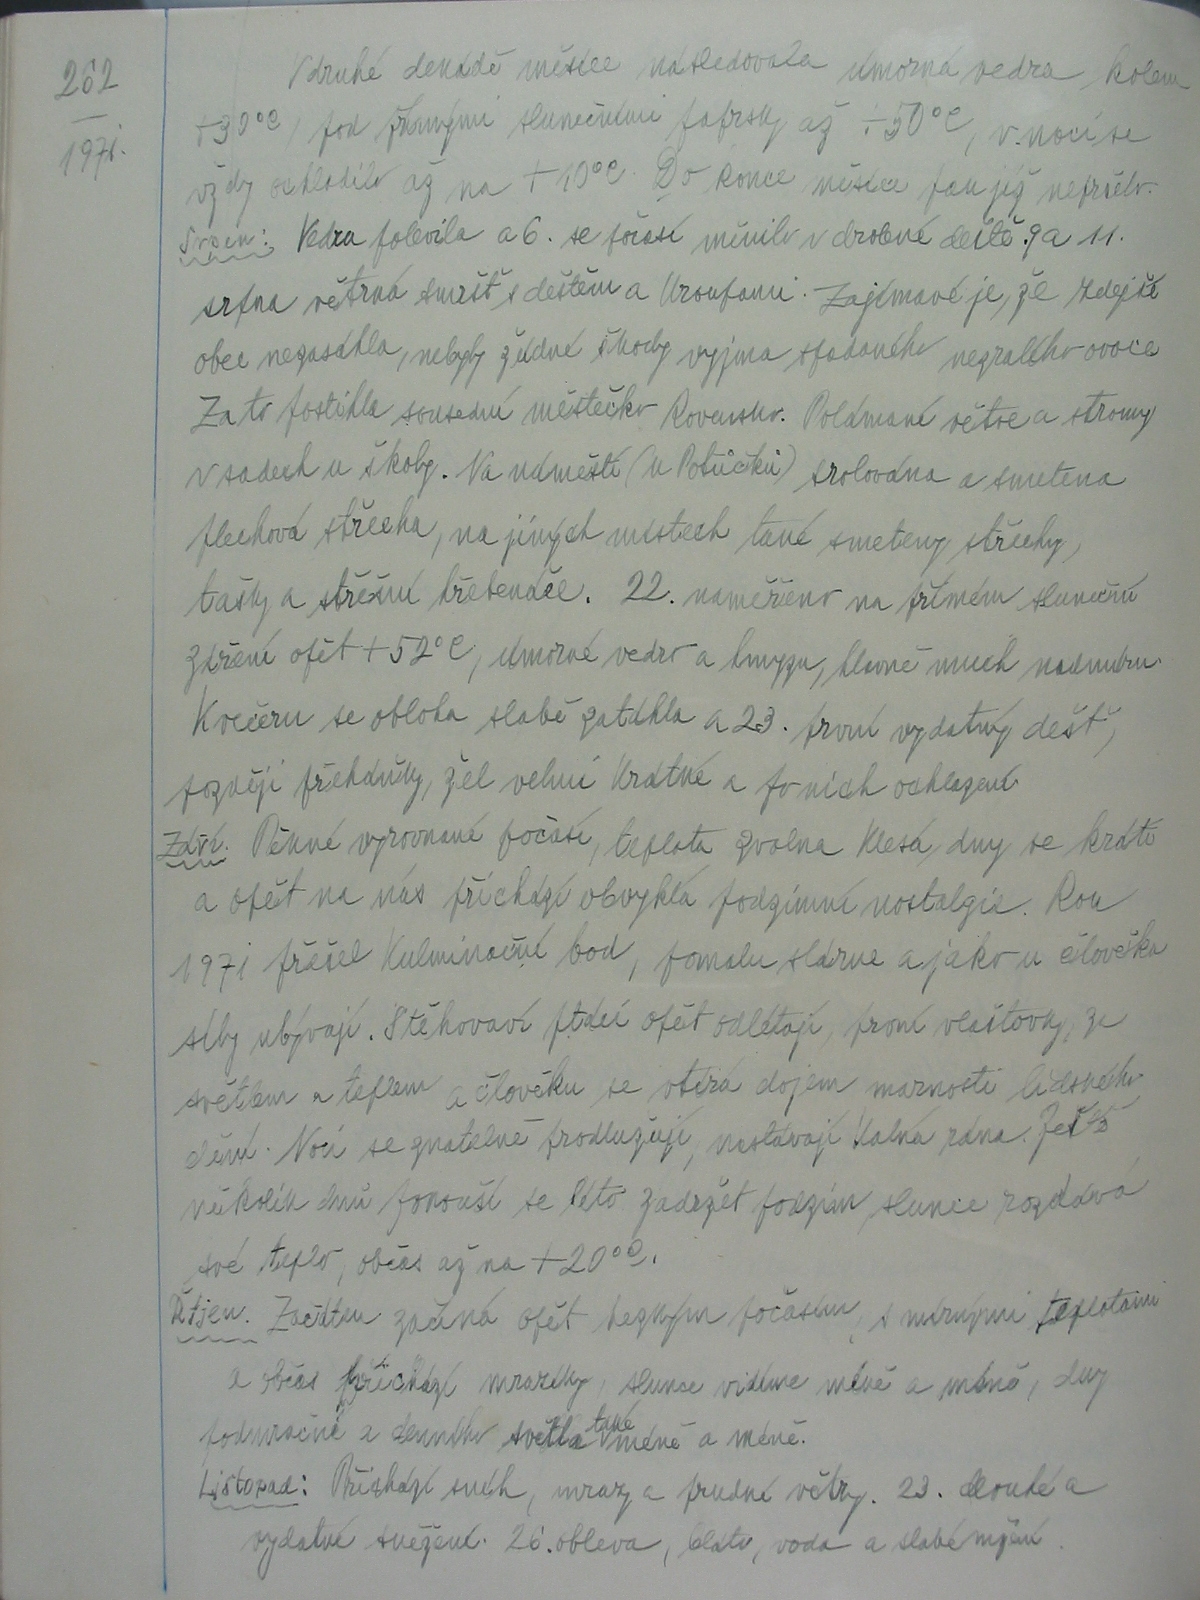 262
1971.
V druhé dekádě měsíce následovala úmorná vedra, kolem
+30°C, pod přímými slunečními paprsky až +50°C, v noci se
vždy ochladilo až na +10°C. Do konce měsíce pak již nepršelo.
Srpen: Vedra polevila a 6. se počasí měnilo v drobné deště. 9 a 11.
srpna větrná smršť s deštěm a kroupami. Zajímavé je, že zdejší
obec nezasáhla, nebyly žádné škody vyjma spadaného nezralého ovoce
Za to postihla sousední městečko Rovensko. Polámané větve a stromy
v sadech u školy. Na náměstí (u Potůčků) srolována a smetena
plechová střecha, na jiných místech také smeteny střechy,
tašky a střešní hřebenáče. 22. naměřeno na přímém sluneční
záření opět +52°C, úmorné vedro a hmyzu, hlavně much nadmíru.
K večeru se obloha slabě zatáhla a 23. první vydatný déšť,
později přeháňky, žel velmi krátké a po nich ochlazení.
Září. Pěkné vyrovnané počasí, teplota zvolna klesá, dny se krátí
a opět na nás přichází obvyklá podzimní nostalgie. Rok
1971 přešel kulminační bod, pomalu stárne a jako u člověka
síly ubývají. Stěhovaví ptáci opět odlétají, první vlaštovky, za
světlem a teplem a člověku se vtírá dojem marnosti lidského
dění. Noci se znatelně prodlužují, nastávají kalná rána. Ještě
několik dnů pokouší se léto zadržet podzim, slunce rozdává
své teplo, občas až na +20°C.
Říjen. Začátkem začíná opět hezkým počasím, s mírnými teplotami
a občas přichází mrazíky, slunce vidíme méně a méně, dny
podmračné a denního světla také méně a méně.
Listopad: Přichází sníh, mrazy a prudké větry. 23. dlouhé a
vydatné sněžení. 26. obleva, bláto, voda a slabé mžení.